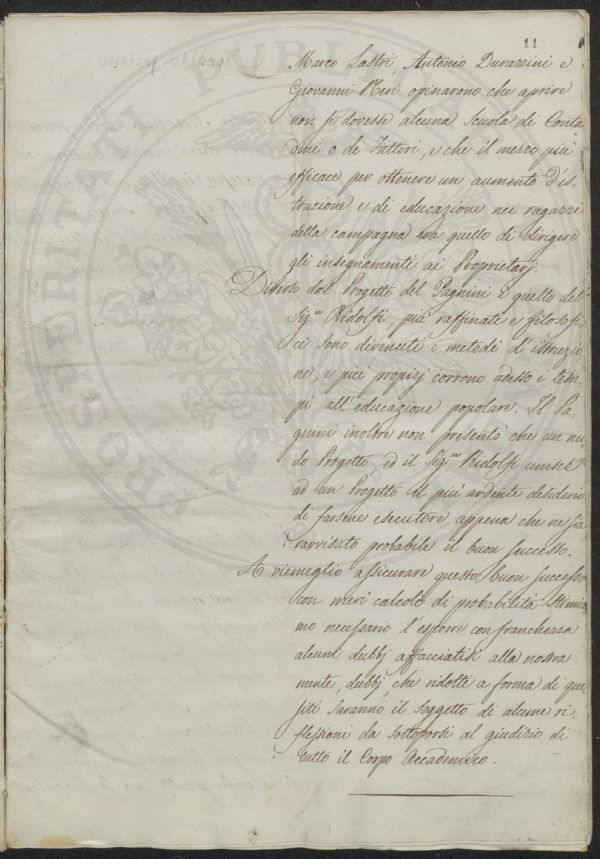 11
Marco Lastri, Antonio Durazzini e
Giovanni Neri opinarono che aprire
non si dovesse alcuna Scuola di Conta
dini o di Fattori, e che il mezzo più
efficace per ottenere un aumento d'is
truzione e di educazione nei ragazzi
della campagna era quello di dirigere
gli insegnamenti ai Proprietarj.
Diverso dal Progetto del Pagnini è quello del
Sig.re Ridolfi, più raffinati e filosofi
ci sono divenuti i metodi d'istruzio
ne, e più propizj corrono adesso i tem
pi all'educazione popolare. Il Pa
gnini inoltre non presentò che un nu
do Progetto, ed il Sig.re Ridolfi unisce
ad un Progetto il più ardente desiderio
di farsene esecutore appena che ne sia
ravvisato probabile il buon successo.
A viemeglio assicurare questo buon successo
con meri calcoli di probabilità stimia
mo necessario l'esporre con franchezza
alcuni dubbj affacciatisi alla nostra
mente, dubbj, che ridotti a forma di que
siti saranno il soggetto di alcune ri
flessioni da sottoporsi al giudizio di
tutto il Corpo Accademico.
PROSPERITATI PUBLICAE